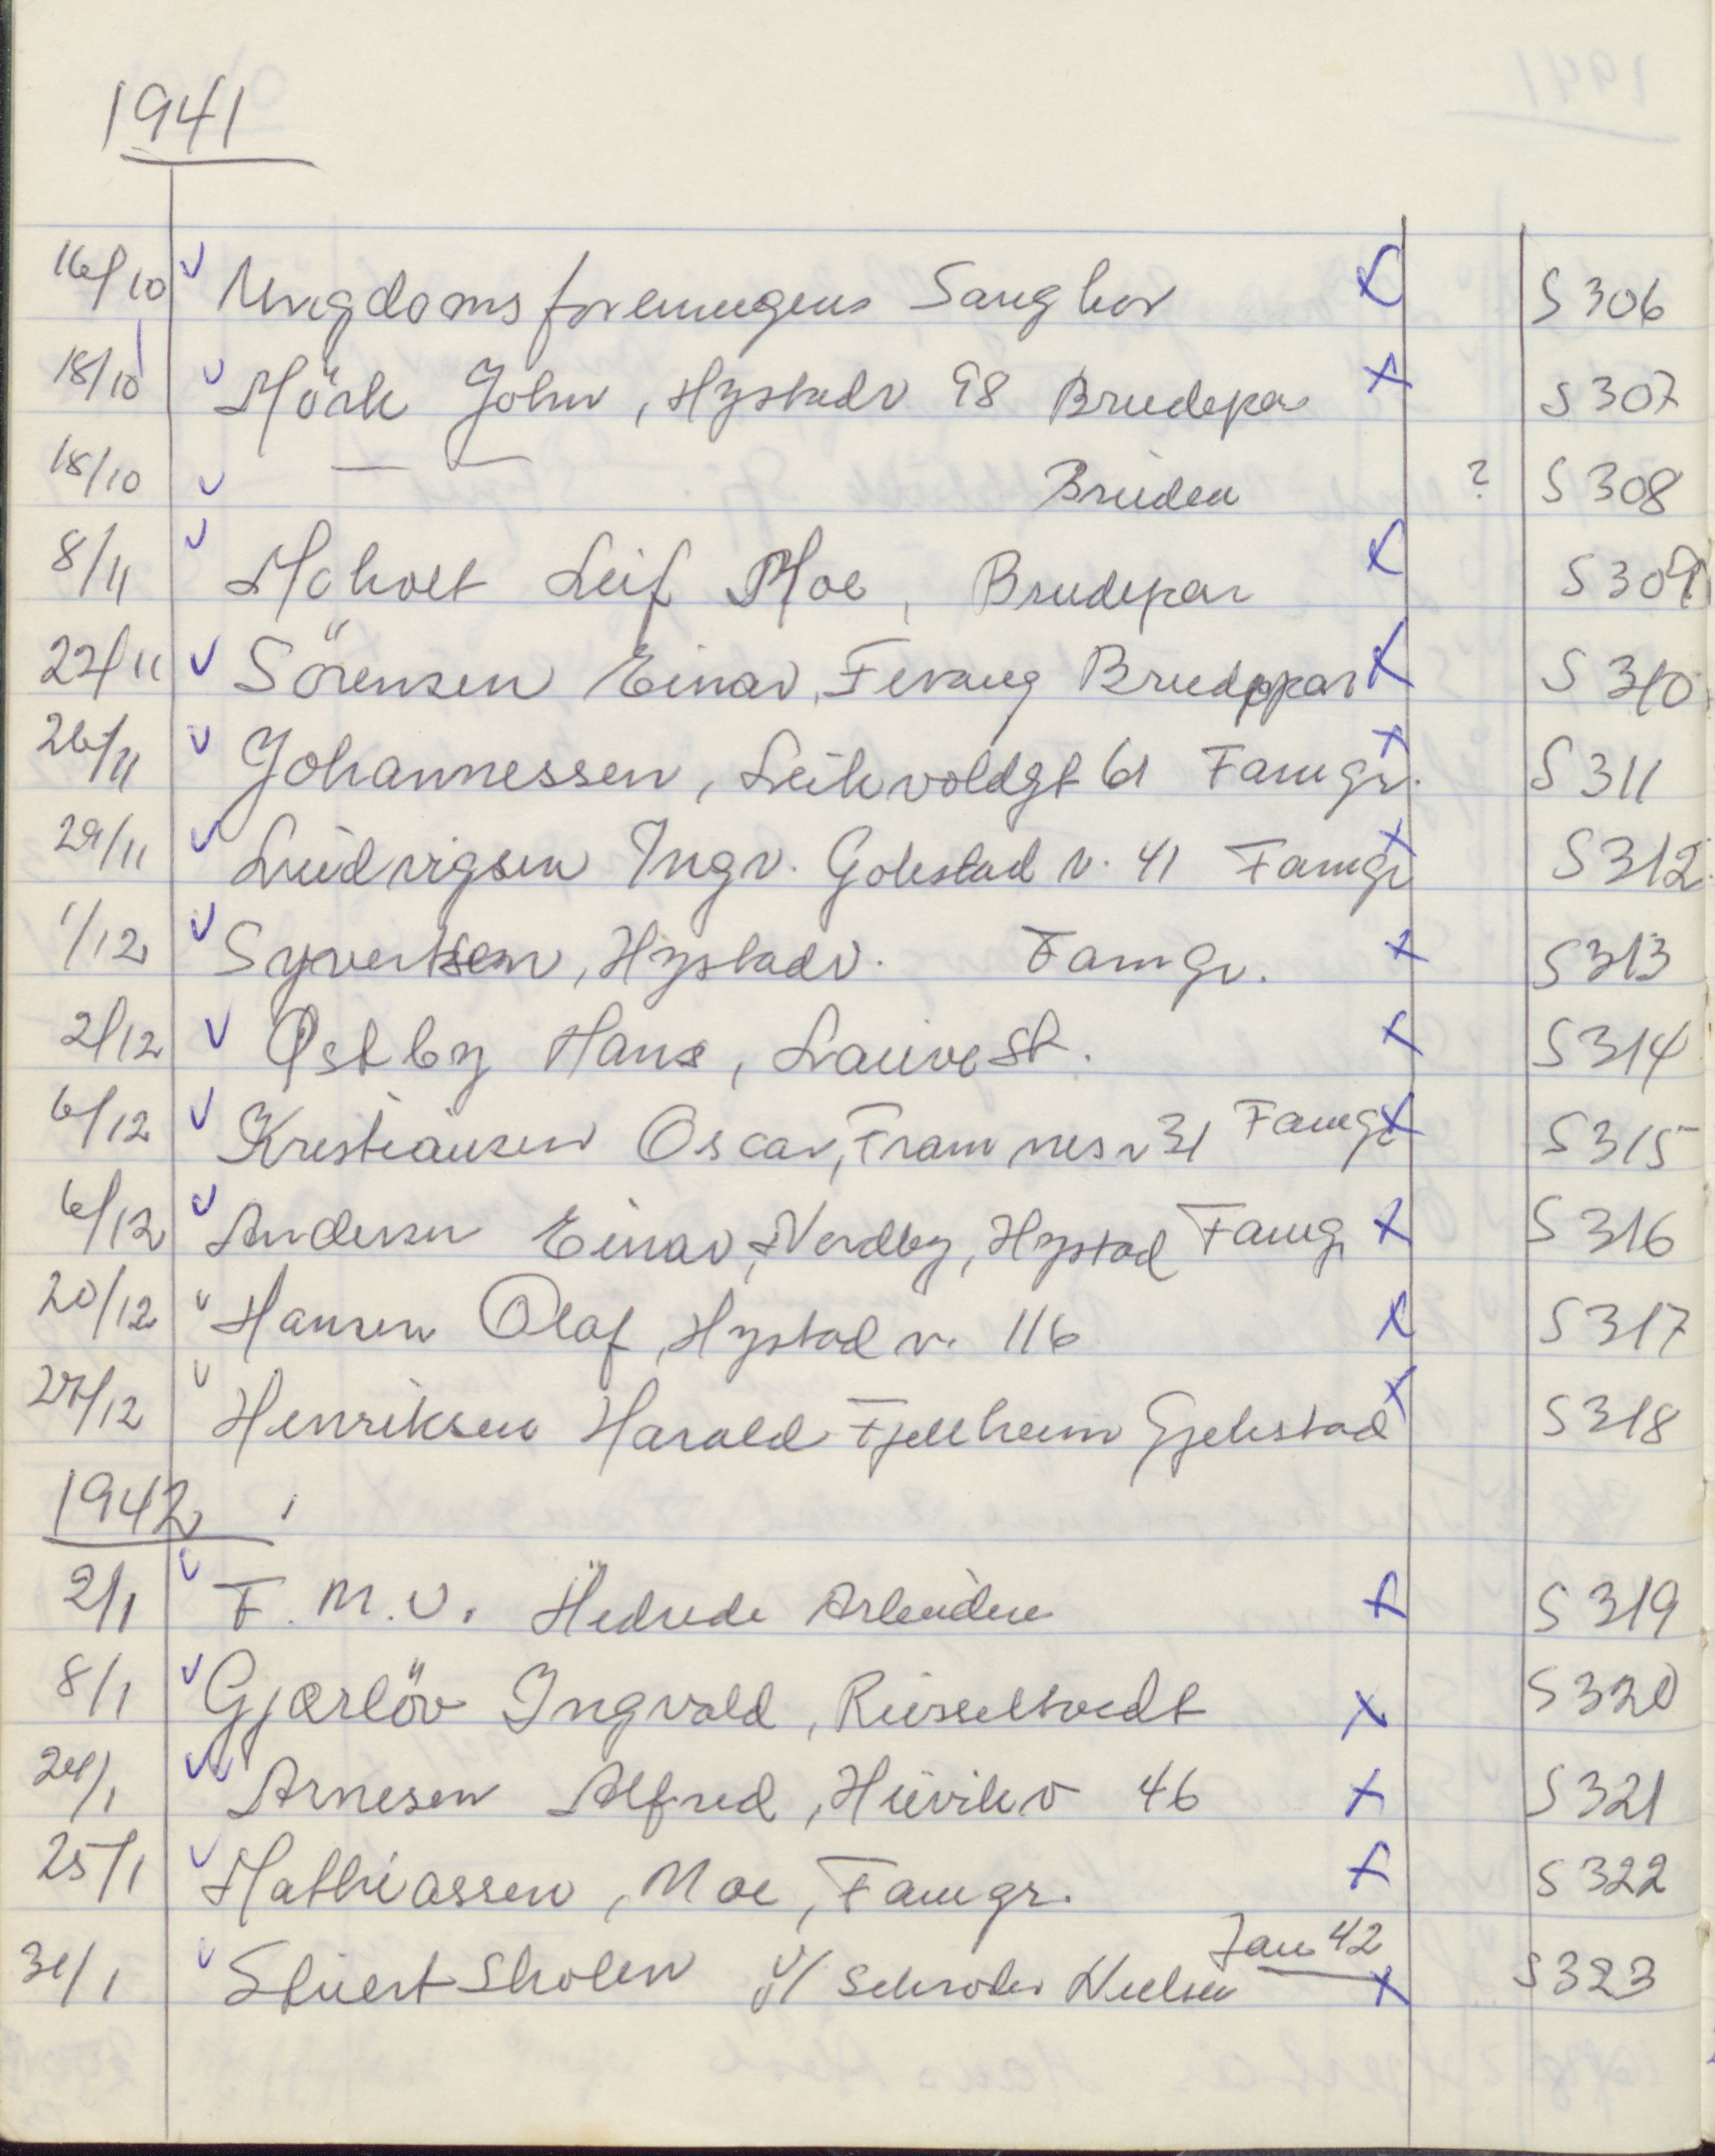 1941
16/10 Ungdomsforeningens Sangkor S 306
18/10 Mörk John, Hystadv 98 Brudepar S 307
18/10 — — Bruden ? S 308
8/11 Moholt Leif Moe, Brudepar S 309
22/11 Sörensen Einar, Fevang Brudepar S 310
26/11 Johannessen, Leikvoldgt 61 Famgr. S 311
29/11 Ludvigsen Ingv. Gokstad v. 41 Famgr S 312
1/12 Syvertsen, Hystadv. Famgr. S 313
2/12 Østby Hans, Lauve St. S 314
6/12 Kristiansen Oscar, Framnesv 31 Famgr S 315
6/12 Andersen Einar, Nordby, Hystad Famgr S 316
20/12 Hansen Olaf, Hystad v. 116 S 317
27/12 Henriksen Harald Fjellheim Gjekstad S 318
1942
2/1 F. M. V. Hedrede Arbeidere S 319
8/1 Gjærlöv Ingvald, Russeltvedt S 320
24/1 Arnesen Alfred, Huvikv 46 S 321
25/1 Mathiassen, Moe, Famgr. S 322
31/1 Stuert Skolen v/ Schrøder Nielsen Jan 42 S 323